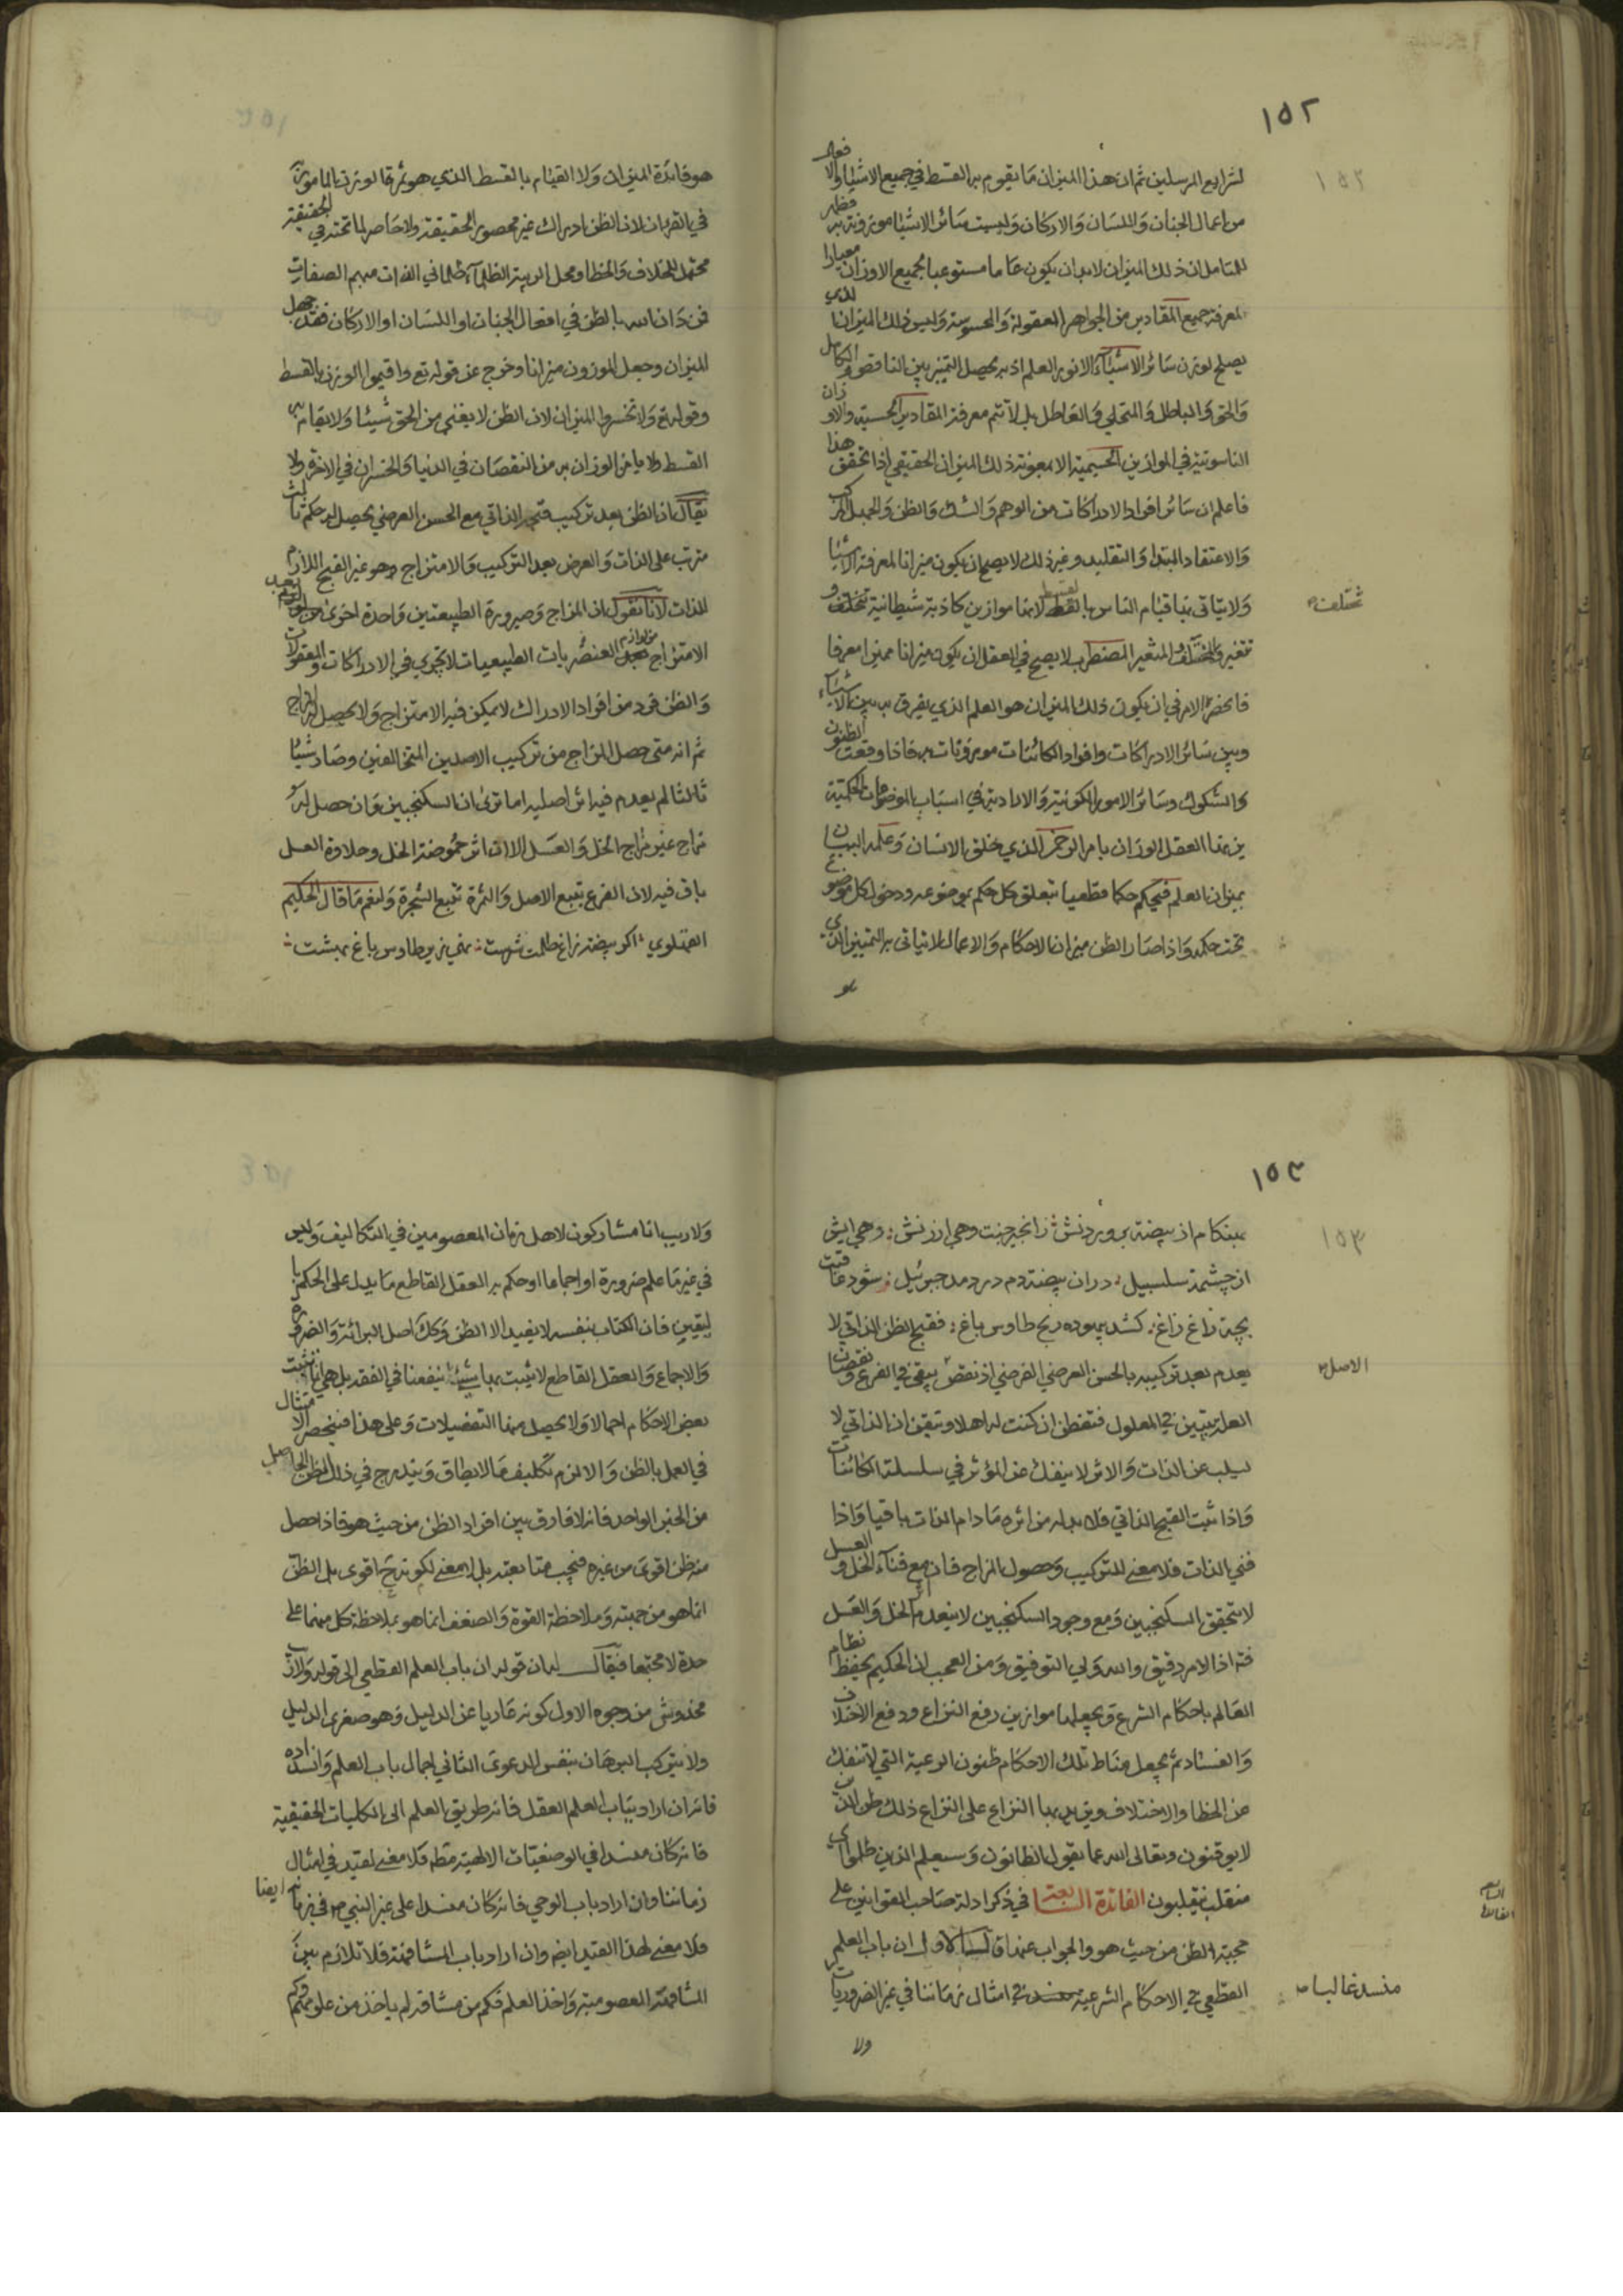 ١٥٢
لشرايع المرسلين ثم ان هذا الميزان ما يقوم به القسط في جميع الاشياء والافعال
من اعمال الجنان واللسان والاركان وليست سائر الاشياء موزونة به فظهر
للمتامل ان ذلك الميزان لابد ان يكون عاما مستوعبا لجميع الاوزان معيارا
لمعرفة جميع المقادير من الجواهر المعقولة والمحسوسة وليس ذلك الميزان الذي
يصلح لوزن سائر الاشياء الا نور العلم اذ به يحصل التميز بين الناقص والكامل
والحق والباطل والمتحلي والعاطل بل لا تتم معرفة المقادير الحسية والاوزان
الناسوتية في الموازين الجسمية الا بمعونة ذلك الميزان الحقيقي اذا تحقق هذا
فاعلم ان سائر افراد الادراكات من الوهم والشك والظن والجهل المركب
والاعتقاد المبتدا والتقليد وغير ذلك لا يصح ان يكون ميزانا لمعرفة الاشياء
ولا يتاتى بها قيام الناس بالقسط لانها موازين كاذبة شيطانية تختلف و
مختلف
تتغير والمختلف المتغير المضطرب لا يصح في العقل ان يكون ميزانا مميزا معرفا
فانحصر الامر في ان يكون ذلك الميزان هو العلم الذي يفرق به بين الاشياء
وبين سائر الادراكات وافراد الكائنات موزونات به فاذا وقعت الظنون
والشكوك وسائر الامور الكونية والارادية في اسباب الوضوعات الحكمية
يزنها العقل الوزان بامر الرحمن الذي خلق الانسان وعلمه البيان
بميزان العلم فيحكم حكما قطعيا بتعلق كل حكم بموضوعه ودخول كل موضوع
تحت حكمه واذا صار الظن ميزان الاحكام والاعمال لا يتاتى به التمييز الذي
هو
هو فائدة الميزان ولا القيام بالقسط الذي هو ثمرة الوزن المامور به
في القران لان الظن ادراك غير محصور الحقيقة ولا حاصر لما تحته في الحقيقة
محتمل للخلاف والخطا ومحل الريبة الظلماء ظلماني الذات مبهم الصفات
فمن دان الله بالظن في افعال الجنان او اللسان او الاركان فقد جهل
الميزان وجعل الموزون ميزانا وخرج عن قوله تع واقيموا الوزن بالقسط
وقوله تع ولا تخسروا الميزان لان الظن لا يغني من الحق شيئا ولا يقام به
القسط ولا يامن الوزان به من النقصان في الدنيا والخسران في الاخرة ولا
يقال ان الظن بعد تركيب قبحه الذاتي مع الحسن العرضي يحصل له حكم ثالث
مترتب على الذات والعرض بعد التركيب والامتزاج وهو غير القبح اللازم
للذات لانا نقول ان المزاج وصيرورة الطبيعتين واحدة اخرى بعد
الامتزاج من لوازم العنصريات الطبيعيات لا يجري في الادراكات والمعقولات
والظن فرد من افراد الادراك لا يمكن فيه الامتزاج ولا يحصل له المزاج
ثم انه متى حصل المزاج من تركيب الاصلين المتخالفين وصار شيئا
ثالثا لم يعدم فيه اثر اصليه اما ترى ان السكنجبين وان حصل له
مزاج غير مزاج الخل والعسل الا ان اثر حموضة الخل وحلاوة العسل
باق فيه لان الفرع يتبع الاصل والثمرة تتبع الشجرة ولنعم ما قال الحكيم
اكر بيضه زاغ ظلمت سرشت نهي زير طاوس باغ بهشت
١٥٣
بهنكام ان بيضه پروردنش ز انجير جنت دهي ارزنش دهي ابش
از چشمه سلسبيل دران بيضه دم در دمد جبرئيل شود عاقبت
بچه زاغ زاغ كشد رنج بيهوده طاوس باغ فقبح الظن الذاتي لا
يعدم بعد تركيبه بالحسن العرضي الفرضي اذ نقص الاصل يبقى في الفرع ونقصان
الاصل
العلة يتبين في المعلول فتفطن ان كنت له اهلا وتيقن ان الذاتي لا
يسلب عن الذات والاثر لا ينفك عن المؤثر في سلسلة الكائنات
واذا ثبت القبح الذاتي فلا بد له من اثره ما دام الذات باقيا واذا
فني الذات فلا معنى للتركيب وحصول المزاج فان مع فناء الخل والعسل
لا يتحقق السكنجبين ومع وجود السكنجبين لا ينعدم الخل والعسل
فهذا الامر دقيق والله ولي التوفيق ومن العجب ان الحكيم يحفظ نظام
العالم باحكام الشرع ويجعلها موازين رفع النزاع ودفع الاختلاف
والفساد ثم يجعل مناط تلك الاحكام ظنون الرعية التي لا تنفك
عن الخطا والاختلاف ويزيد بها النزاع على النزاع ذلك ظن الذين
لا يوقنون وتعالى الله عما يقول الظانون وسيعلم الذين ظلموا اي
منقلب ينقلبون الفائدة السابعة في ذكر ادلة صاحب القوانين على
حجية الظن من حيث هو والجواب عنها قال الاول ان باب العلم
القطعي في الاحكام الشرعية منسد غالبا في امثال زماننا في غير الضروريات
منسد غالبا
ولا
ولا ريب انا مشاركون لاهل زمان المعصومين في التكاليف وليس
في غير ما علم ضرورة او اجماعا او حكم به العقل القاطع ما يدل على الحكم با
ليقين فان الكتاب بنفسه لا يفيد الا الظن وكك اصل البرائة والضرورة
والاجماع والعقل القاطع لا يثبت بها شيئا ينفعنا في الفقه بل هي انما تثبت
بعض الاحكام اجمالا ولا يحصل منها التفصيلات وعلى هذا فينحصر الامتثال
في العمل بالظن والا لزم تكليف ما لا يطاق ويندرج في ذلك الظن الحاصل
من الخبر الواحد فانه لا فارق بين افراد الظن من حيث هو فاذا حصل
منه ظن اقوى من غيره فيجب متابعته بل لا معنى لكونه ح اقوى بل الظن
انما هو من جهته وملاحظة القوة والضعف انما هو بملاحظة كل منهما على
حدة لا مجتمعا فيقال له ان قوله ان باب العلم القطعي الى قوله ولا ريب
مخدوش من وجوه الاول كونه عاريا عن الدليل وهو صغرى الدليل
ولا يتركب البرهان بنفس الدعوى الثاني اجمال باب العلم وانسداده
فانه ان اراد بباب العلم العقل فانه طريق العلم الى الكليات الحقيقية
فانه كان منسدا في الوضعيات الالهية قط فلا معنى لقيد في امثال
زماننا وان اراد باب الوحي فانه كان منسدا على غير النبي ص في زمانه ايضا
فلا معنى لهذا القيد ايضا وان اراد باب المشافهة فلا تلازم بين
المشافهة المعصومية واخذ العلم فكم من مشافه لم ياخذ من علومهم وكم